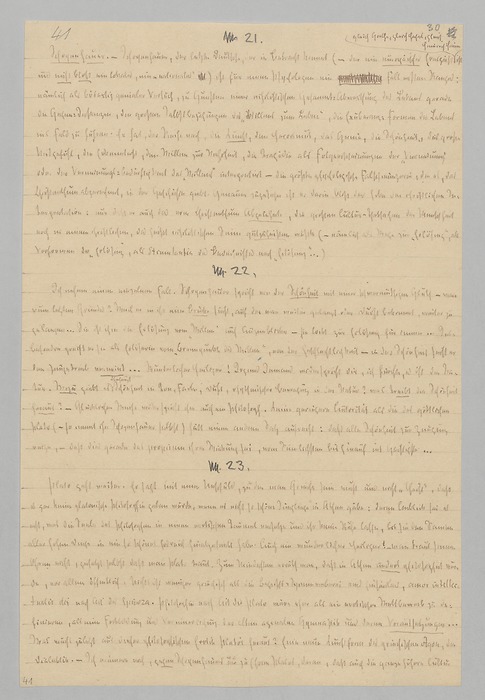 41
30
Nr. 21.
gleich Goethe, gleich Hegel, gleich
Heinrich Heine
Schopenhauer. — Schopenhauer, der letzte Deutsche, der in Betracht kommt (— der ein europäisches Ereigniß
und nicht bloß ein lokales, ein „nationales“ ist) ist für einen Psychologen ein Fall ersten Ranges:
nämlich als bösartig genialer Versuch, zu Gunsten einer nihilistischen Gesammtabwerthung des Lebens gerade
die Gegen-Instanzen, die großen Selbstbejahungen des „Willens zum Leben“, die Exuberanz-Formen des Lebens
ins Feld zu führen. Er hat, der Reihe nach, die Kunst, den Heroismus, das Genie, die Schönheit, das große
Mitgefühl, die Erkenntniß, den Willen zur Wahrheit, die Tragödie als Folgeerscheinungen der „Verneinung“
oder der Verneinungs-Bedürftigkeit des „Willens“ interpretirt — die größte psychologische Falschmünzerei, die es, das
Christenthum abgerechnet, in der Geschichte giebt. Genauer zugesehn ist er darin bloß der Erbe der christlichen In-
terpretation: nur daß er auch das vom Christenthum Abgelehnte, die großen Cultur-Thatsachen der Menschheit
noch in einem christlichen, das heißt nihilistischen Sinne gutzuheißen wußte (— nämlich als Wege zur „Erlösung“, als
Vorformen der „Erlösung“, als Stimulantia des Bedürfnisses nach „Erlösung“...)
Nr. 22.
Ich nehme einen einzelnen Fall. Schopenhauer spricht von der Schönheit mit einer schwermüthigen Gluth, — warum
letzten Grundes? Weil er in ihr eine Brücke sieht, auf der man weiter gelangt oder Durst bekommt, weiter zu
gelangen... Sie ist ihm die Erlösung vom „Willen“ auf Augenblicke — sie lockt zur Erlösung für immer... Ins-
besondere preist er sie als Erlöserin vom „Brennpunkte des Willens“, von der Geschlechtlichkeit — in der Schönheit sieht er
den Zeugetrieb verneint... Wunderlicher Heiliger! Irgend Jemand widerspricht dir, ich fürchte, es ist die Na-
tur. Wozu giebt es überhaupt Schönheit in Ton, Farbe, Duft, rhythmischer Bewegung in der Natur? was treibt die Schönheit
heraus? — Glücklicherweise widerspricht ihm auch ein Philosoph. Keine geringere Autorität als die des göttlichen
Plato (— so nennt ihn Schopenhauer selbst) hält einen andren Satz aufrecht: daß alle Schönheit zur Zeugung
reize, — daß dies gerade das proprium ihrer Wirkung sei, vom Sinnlichsten bis hinauf ins Geistigste...
Nr. 23.
Plato geht weiter. Er sagt mit einer Unschuld, zu der man Grieche sein muß und nicht „Christ“, daß
es gar keine platonische Philosophie geben würde, wenn es nicht so schöne Jünglinge in Athen gäbe: deren Anblick sei es
erst, was die Seele des Philosophen in einen erotischen Taumel versetze und ihr keine Ruhe lasse, bis sie den Samen
aller hohen Dinge in ein so schönes Erdreich hinabgesenkt habe. Auch ein wunderlicher Heiliger! — man traut seinen
Ohren nicht, gesetzt selbst daß man Plato traut. Zum Mindesten erräth man, daß in Athen anders philosophirt wur-
de, vor allem öffentlich. Nichts ist weniger griechisch als die Begriffs-Spinneweberei eines Einsiedlers, amor intellec-
tualis dei nach Art des Spinoza. Philosophie nach Art des Plato wäre eher als ein erotischer Wettbewerb zu de-
finiren, als eine Fortbildung und Verinnerlichung der alten agonalen Gymnastik und deren Voraussetzungen...
Was wuchs zuletzt aus dieser philosophischen Erotik Platos heraus? Eine neue Kunstform des griechischen Agon, die
Dialektik. — Ich erinnere noch, gegen Schopenhauer und zu Ehren Platos, daran, daß auch die ganze höhere Cultur
41